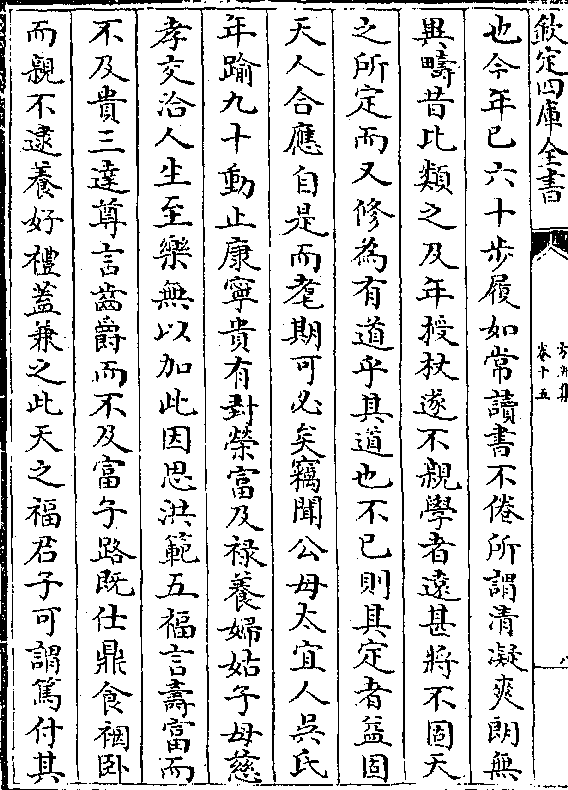 欽定四庫全書
卷十五
也今年已六十步履如常讀書不倦所謂清凝爽朗無
異疇昔比類之及年授杖遂不親學者遠甚將不固天
之所定而又修為有道乎其道也不已則其定者益固
天人合應自是而耄期可必矣竊聞公母太宜人吳氏
年踰九十動止康寧貴有封榮富及祿養婦姑子母慈
孝交洽人生至樂無以加此因思洪範五福言壽富而
不及貴三達尊言齒爵而不及富子路既仕鼎食裀臥
而親不逮養好禮蓋兼之此天之福君子可謂篤付其